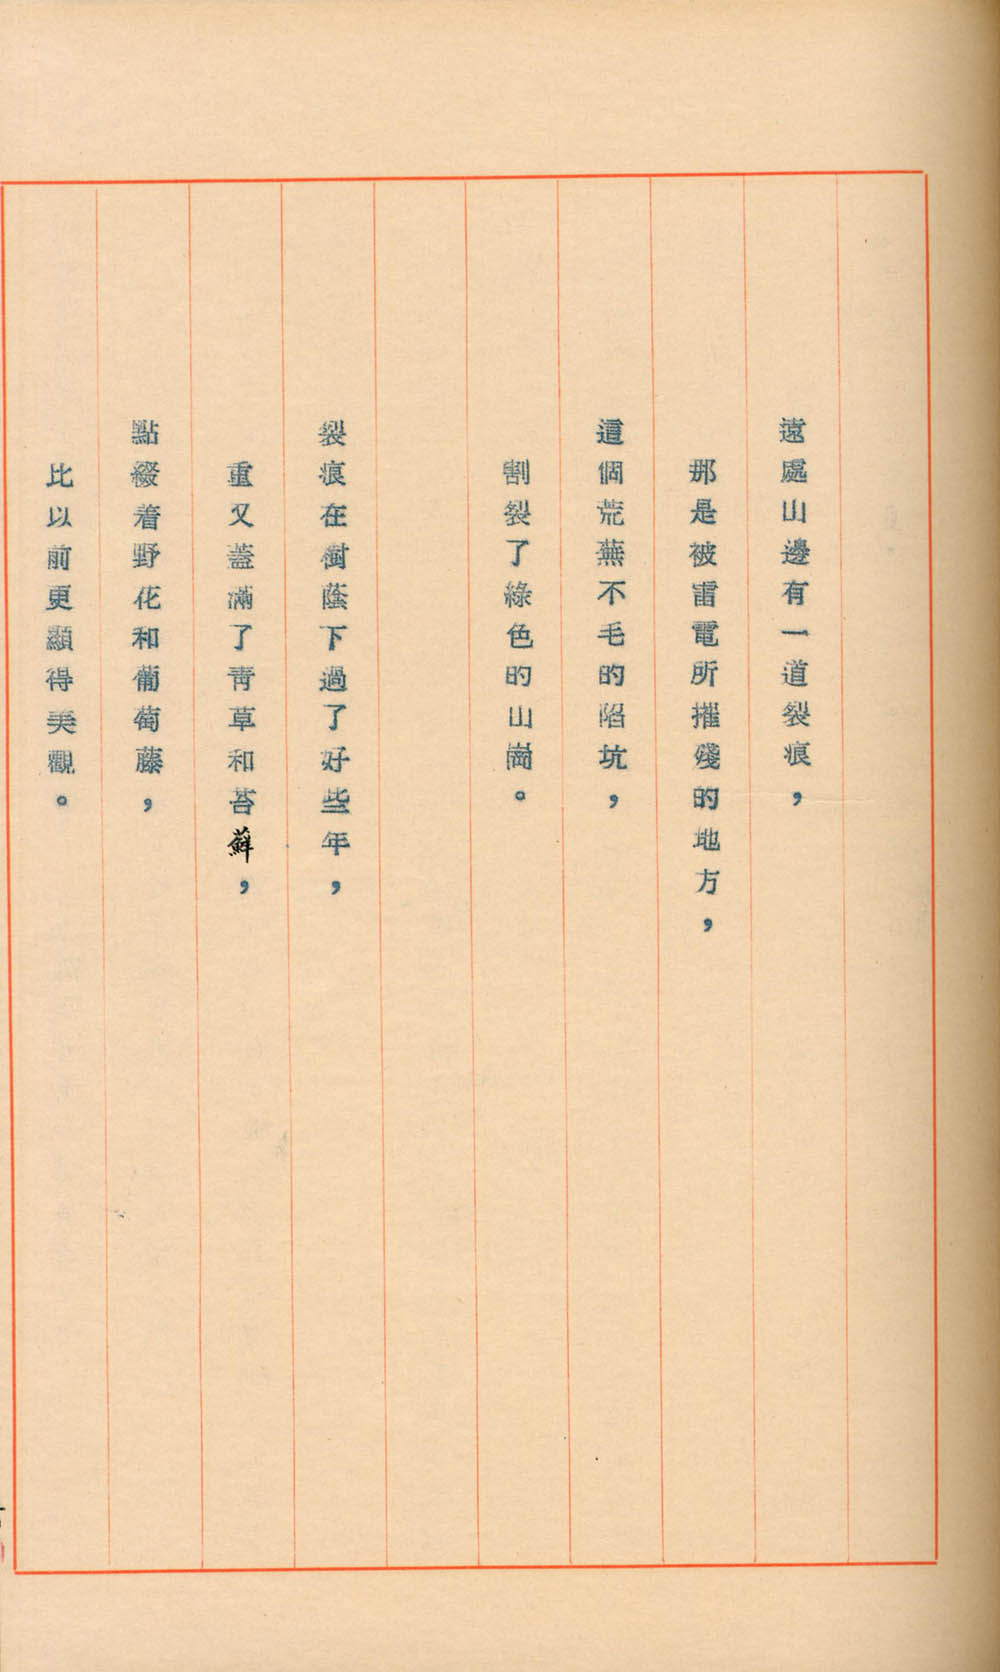 遠處山邊有一道裂痕，
那是被雷電所摧殘的地方，
這個荒蕪不毛的陷坑，
割裂了綠色的山崗。
裂痕在樹蔭下過了好些年，
重又蓋滿了青草和苔蘚，
點綴着野花和葡萄藤，
比以前更顯得美觀。